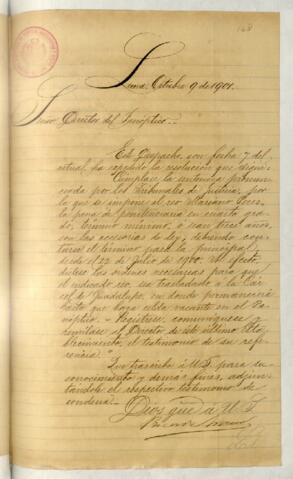 168
Lima, Octubre 9 de 1901.
Señor Director del Panóptico.
Este Despacho, con fecha 7 del
actual, ha expedido la resolución que sigue:
"Cúmplase la sentencia pronun-
ciada por los Tribunales de Justicia, por
la que se impone al reo Mariano
la pena de penitenciaria en cuarto gra-
do, término mínimo, ó sean trece años,
con las accesorias de ley, debiendo con-
tarse el término para la principal,
desde el 22 de Julio de 1900. Al efecto
díctese las órdenes necesarias para que
el indicado reo, sea trasladado a la Cár-
cel de Guadalupe, en donde permanecerá
hasta que haya celda vacante en el Pa-
nóptico. Regístrese, comuníquese y
remítase al Director de este último Esta-
blecimiento, el testimonio de su refe-
rencia."
Que trascribo á U.S. para su
conocimiento y demás fines, adjun-
tándole el respectivo testimonio de
condena.
Dios gue á U.S.